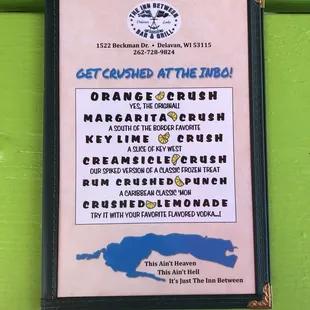 THE INN BETWEEN
Delavan Lake
Wisconsin
BAR & GRILL
1522 Beckman Dr. • Delavan, WI 53115
262-728-9824
GET CRUSHED AT THE INBO!
ORANGE CRUSH
YES, THE ORIGINAL!
MARGARITA CRUSH
A SOUTH OF THE BORDER FAVORITE
KEY LIME CRUSH
A SLICE OF KEY WEST
CREAMSICLE CRUSH
OUR SPIKED VERSION OF A CLASSIC FROZEN TREAT
RUM CRUSHED PUNCH
A CARIBBEAN CLASSIC 'MON
CRUSHED LEMONADE
TRY IT WITH YOUR FAVORITE FLAVORED VODKA....!
This Ain't Heaven
This Ain't Hell
It's Just The Inn Between